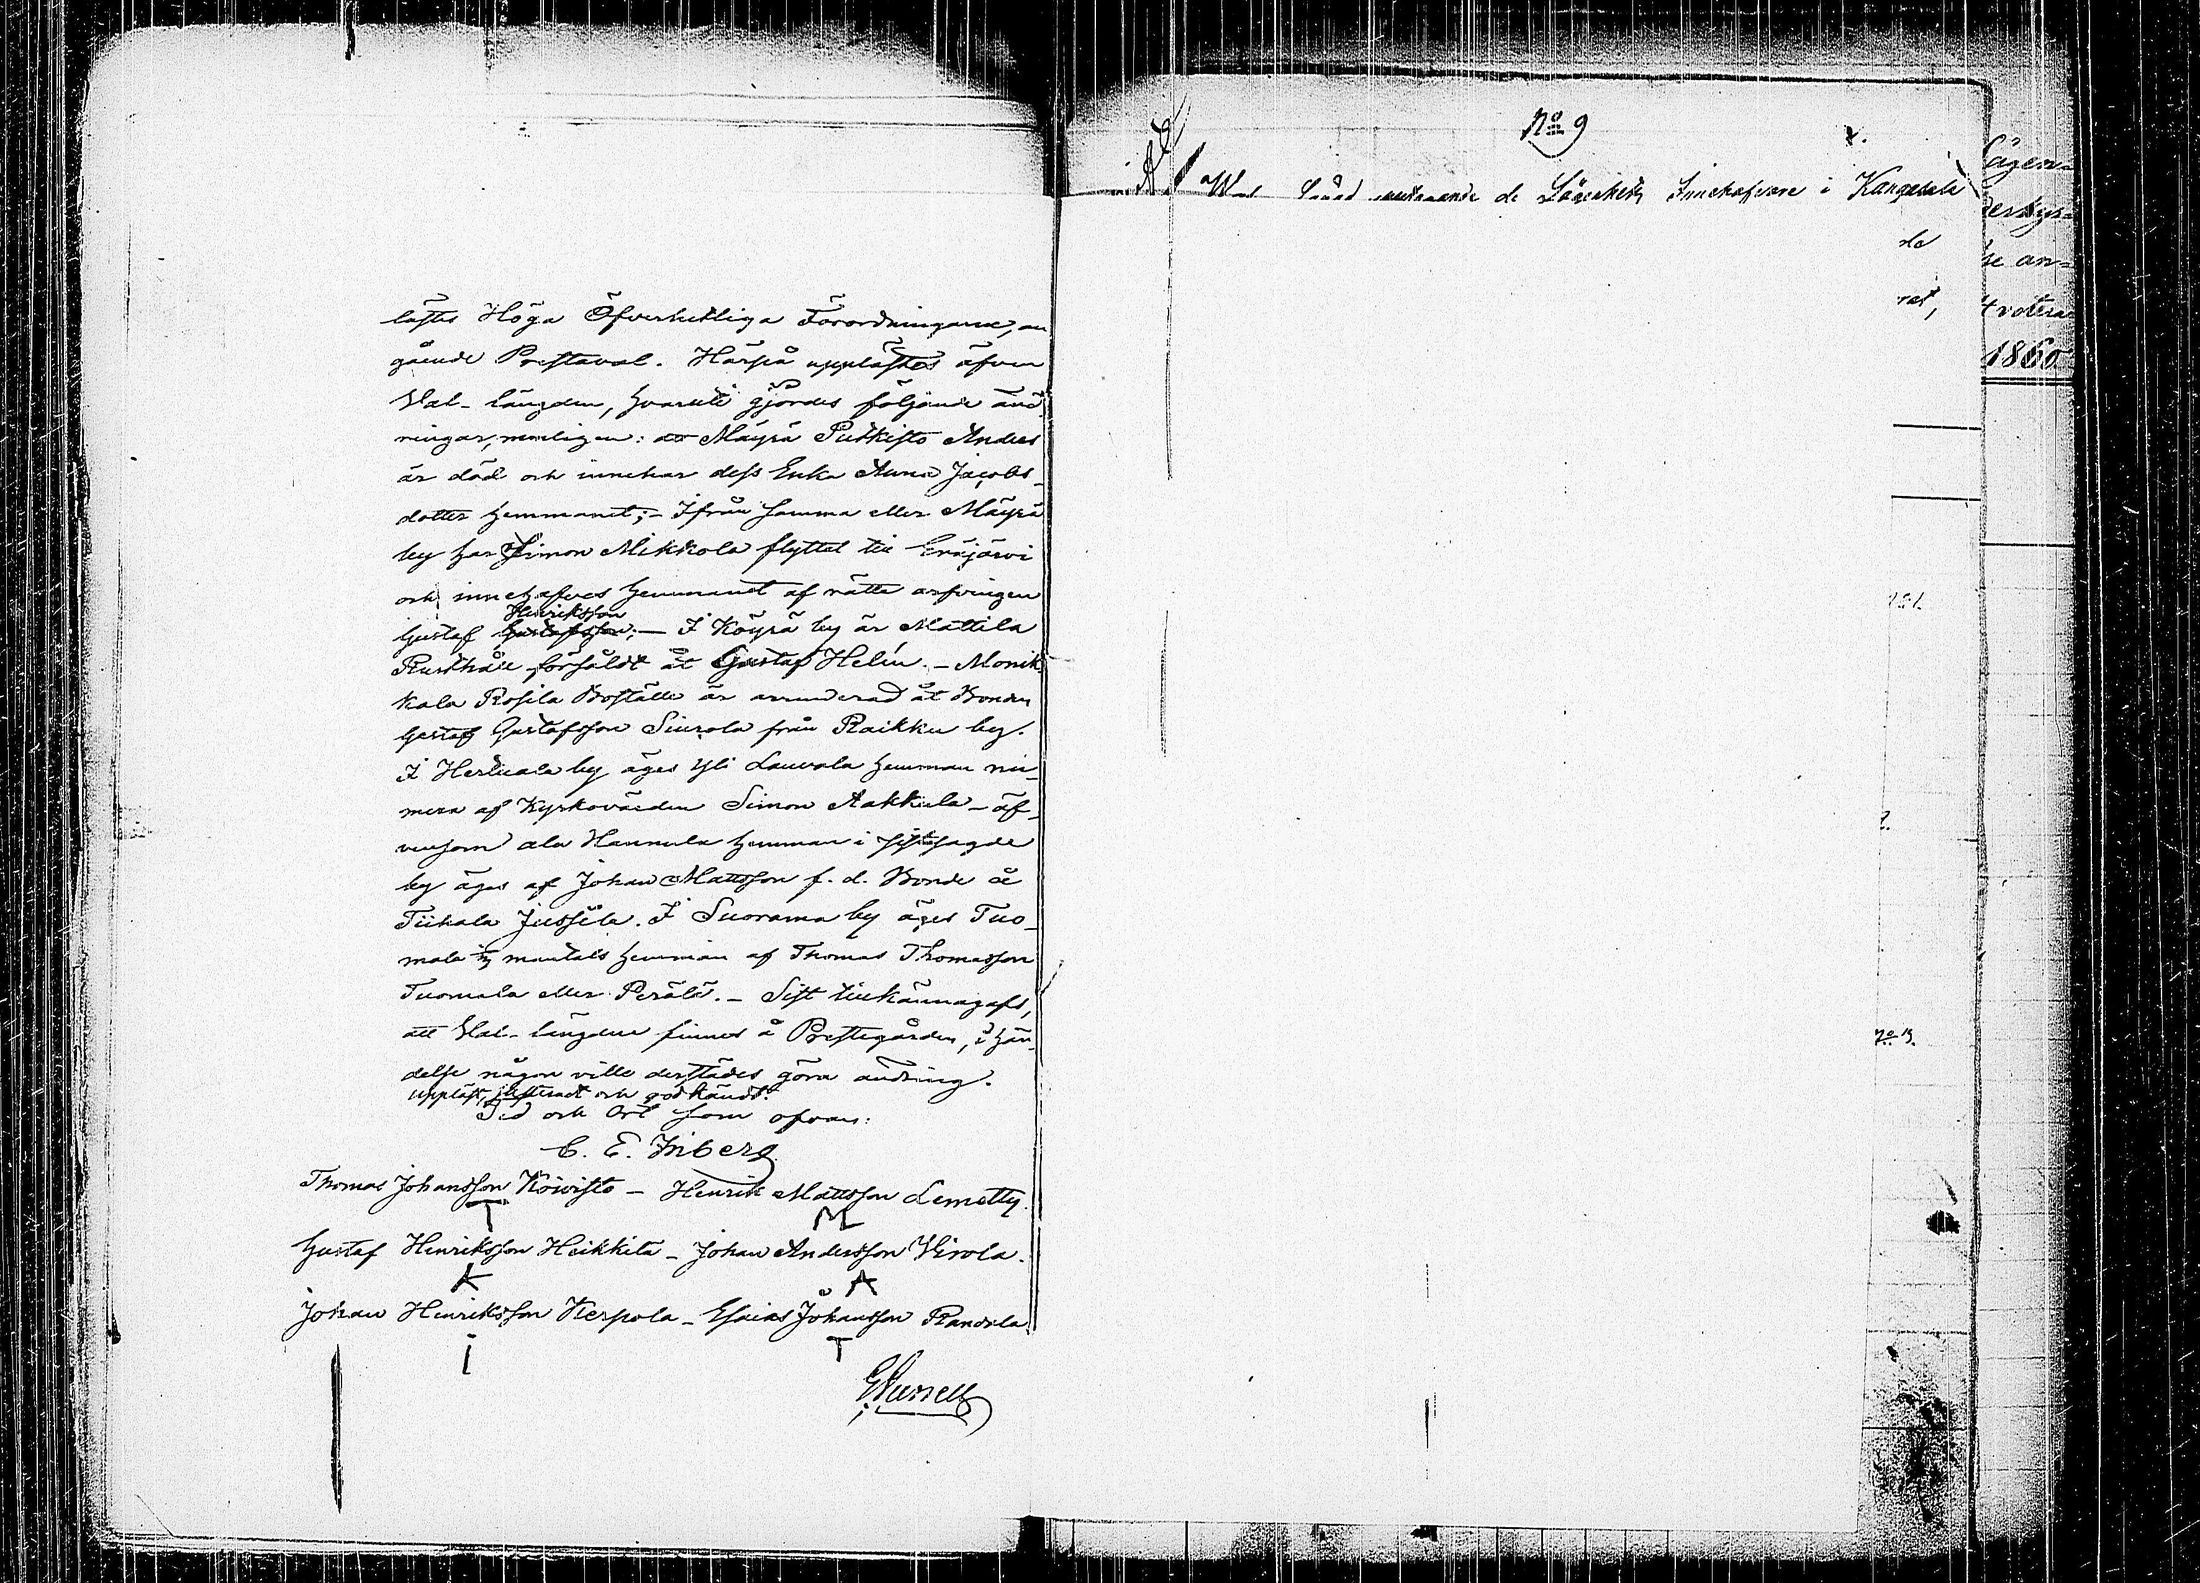 lästes Höga Öfverhetliga Förordningarne, an
gående Prestaval. Härpå upplästes äfven
Val-längden, hvaruti gjordes följande änd
ringar, nemligen: Mäyrä Putkisto Anders
är död och innehar dess Enka Anna Jacobs-
dotter hemmanet; – Ifrån samma eller Mäyrä
by har Simon Mikkola flyttat till Eräjärvi
och innehafves hemmanet af rätte arfvingen
Henriksson
Gustaf Gustafsson; – I Köyrä by är Mattila
Rusthåll försåldt åt Gustaf Helin. – Monik
kala Rosila Boställe är arrenderad åt Bonden
Gustaf Gustafsson Siurola från Raikku by.
I Hertuala by äges Yli Lauvala hemman nu-
mera af Kyrkovärden Simon Aakkula – äf-
vensom ala Hannula hemman i sistsagde
by äges af Johan Mattsson f. d. Bonde å
Tiihala Jussila. I Suorama by äges Tuo-
mala mantals hemman af Thomas Thomasson
Tuomala eller Perälä. – Sist tillkännagafs,
att Val-längden finnes å Prestegården, i hän-
delse någon ville derstädes göra ändring.
Uppläst, justeradt och godkändt.
Tid och Ort som ofvan:
C. E. Friberg
Thomas Johansson Koivisto – Henrik Mattsson Lemetty.
T M
Gustaf Henriksson Heikkilä – Johan Andersson Virola.
K A
Johan Henriksson Kerpola – Esaias Johansson Randala
I T
No 9
Längden utvisande de Lägenhets Innehafvare i Kangasala
de
rat,
Lägen=
derskys=
se an=
t votera
1860
No 3.